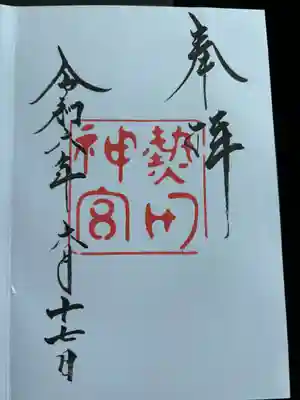 奉拝
熱田
神宮
令和八年六月十七日